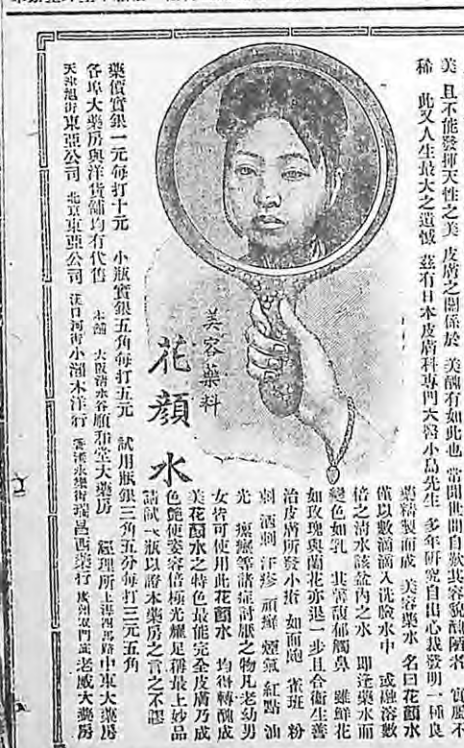 美 且不能發揮天性之美 皮膚之關係於 美醜有如此也 常聞世間自歎其容貌醜陋者 實屬不
稀 此又人生最大之遺憾 茲有日本皮膚科專門大醫小島先生 多年研究自出心裁發明一種良
藥精製而成 美容藥水 名曰花顏水
僅以數滴滴入洗臉水中 或融溶數
倍之清水該盆內之水 即逢藥水而
變色如乳 其芳馥郁觸鼻 雖鮮花
如玫瑰與蘭花亦退一步且合衛生善
治皮膚所發小瘡 如面皰 雀斑 粉
刺 酒刺 汗疹 頑癬 煙氣 紅點 油
光 等諸症討厭之物凡老幼男
女皆可使用此花顏水 均得轉醜成
美花顏水之特色最能完全皮膚乃成
色艷使姿容倍極光耀足稱最上妙品
請試一瓶以證本藥房之言之不謬
美容藥料
花顏水
藥價實銀一元每打十元 小瓶實銀五角每打五元 試用瓶銀三角五分每打三元五角
各埠大藥房與洋貨舖均有代售 本舖 大阪清水谷順和堂大藥房 經理所上海四馬路中東大藥房
天津旭街東亞公司 北京東亞公司 漢口河街小濱木洋行 香港永樂街瑞昌西藥行 廣州雙門底老威大藥房